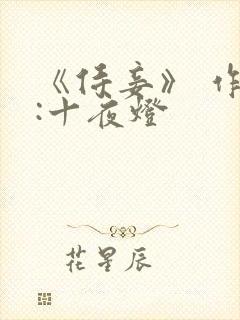 《侍妾》 作
:十夜燈
花星辰